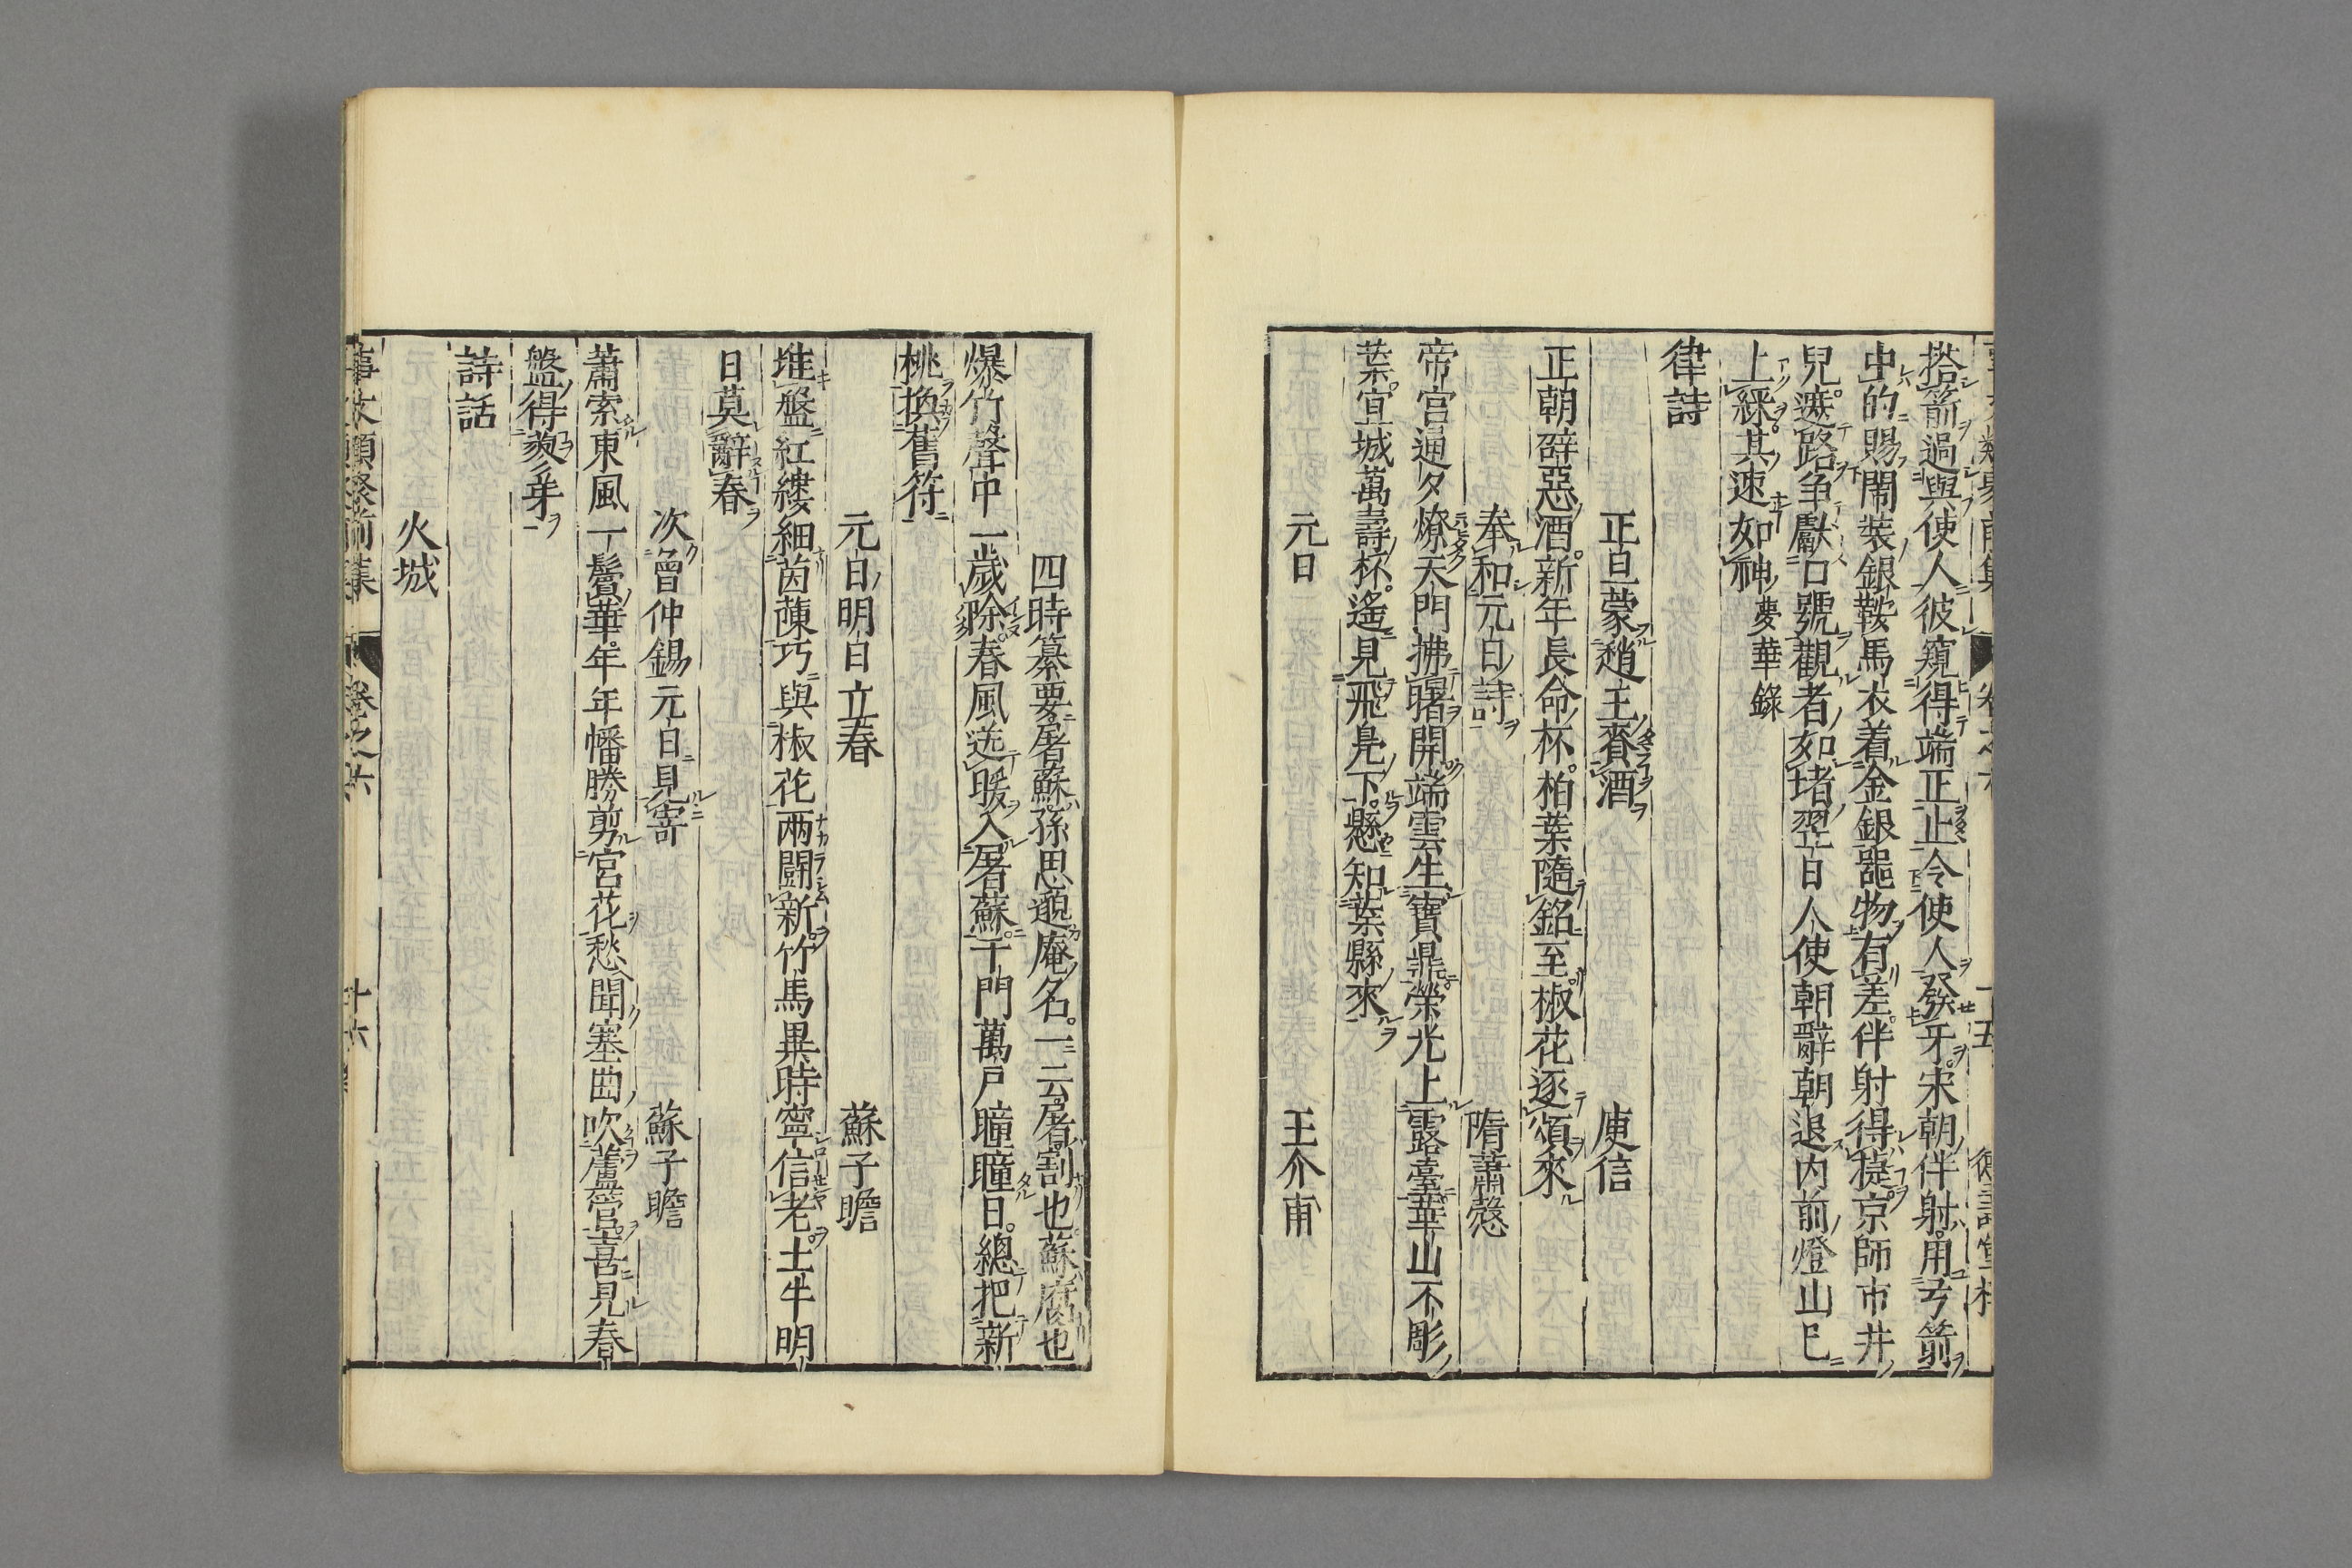 搭箭過與使人彼窺得端正止令使人發牙宋朝伴射用弓箭
中的賜閙裝銀鞍馬衣着金銀噐物有差伴射得㨗京師市井
兒遮路争獻口號觀者如堵翌日人使朝辭朝退内前燈山已
上綵其速如神夢華錄
律詩
正旦蒙趙王賚酒 庾信
正朝辟惡酒新年長命杯柏葉隨銘至椒花逐頌來
奉和元日詩 隋蕭慤
帝宮通夕燎天門拂曙開端雲生寶鼎榮光上露臺華山不彫
葉宜城萬壽杯遙見飛鳧下懸知葉縣來
元日 王介甫
四時纂要屠蘇孫思邈庵名一云屠割也蘇腐也
爆竹聲中一歲除春風送暖入屠蘇千門萬戸曈曈日總把新
桃換舊符
元日明日立春 蘇子瞻
堆盤紅縷細茵蔯巧與椒花兩鬪新竹馬異時寧信老土牛明
日莫辭春
次曾仲錫元日見寄 蘇子瞻
蕭索東風一鬢華年年幡勝剪宮花愁聞塞曲吹蘆管喜見春
盤得蔜芽
詩話
火城
事文類聚前集 卷之六 十六